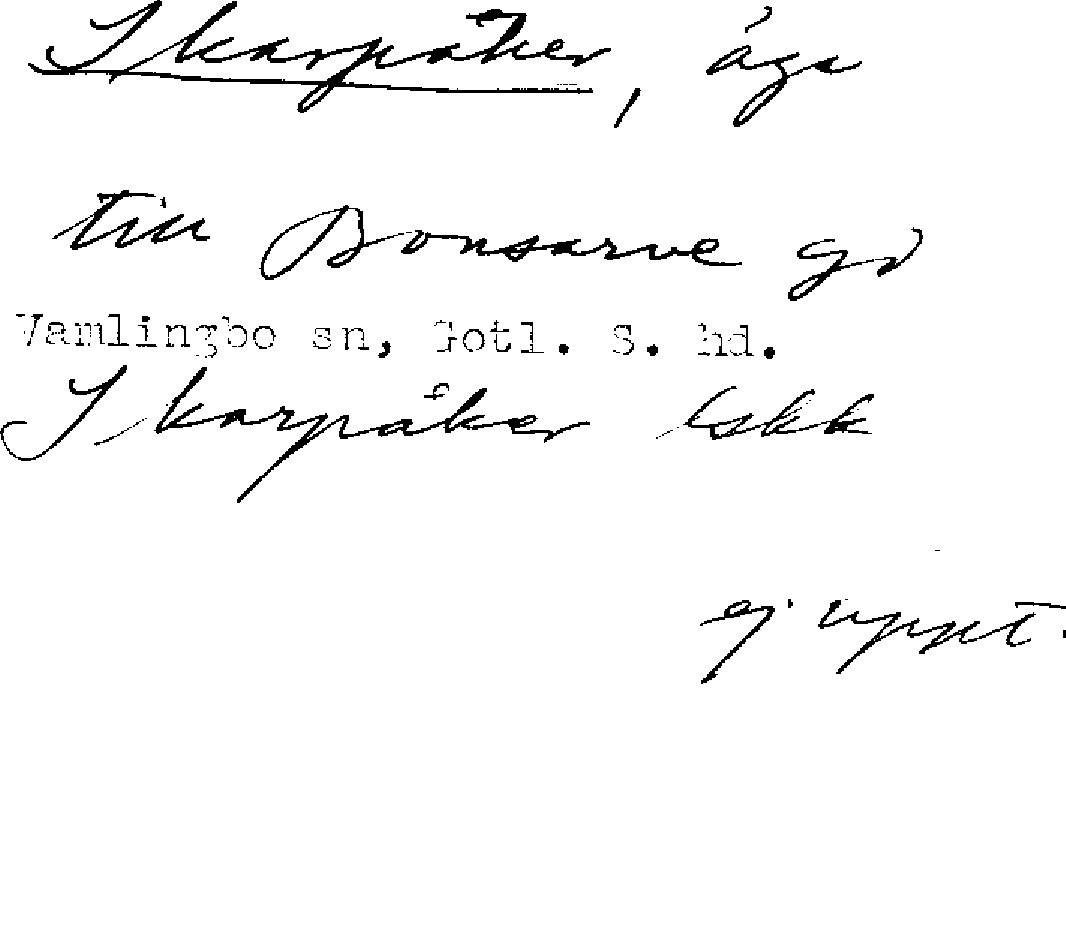 Skarpåker, äga
till Bonsarve gd
Vamlingbo sn, Gotl. S. hd.
Skarpåker Lskk
ej uppt.